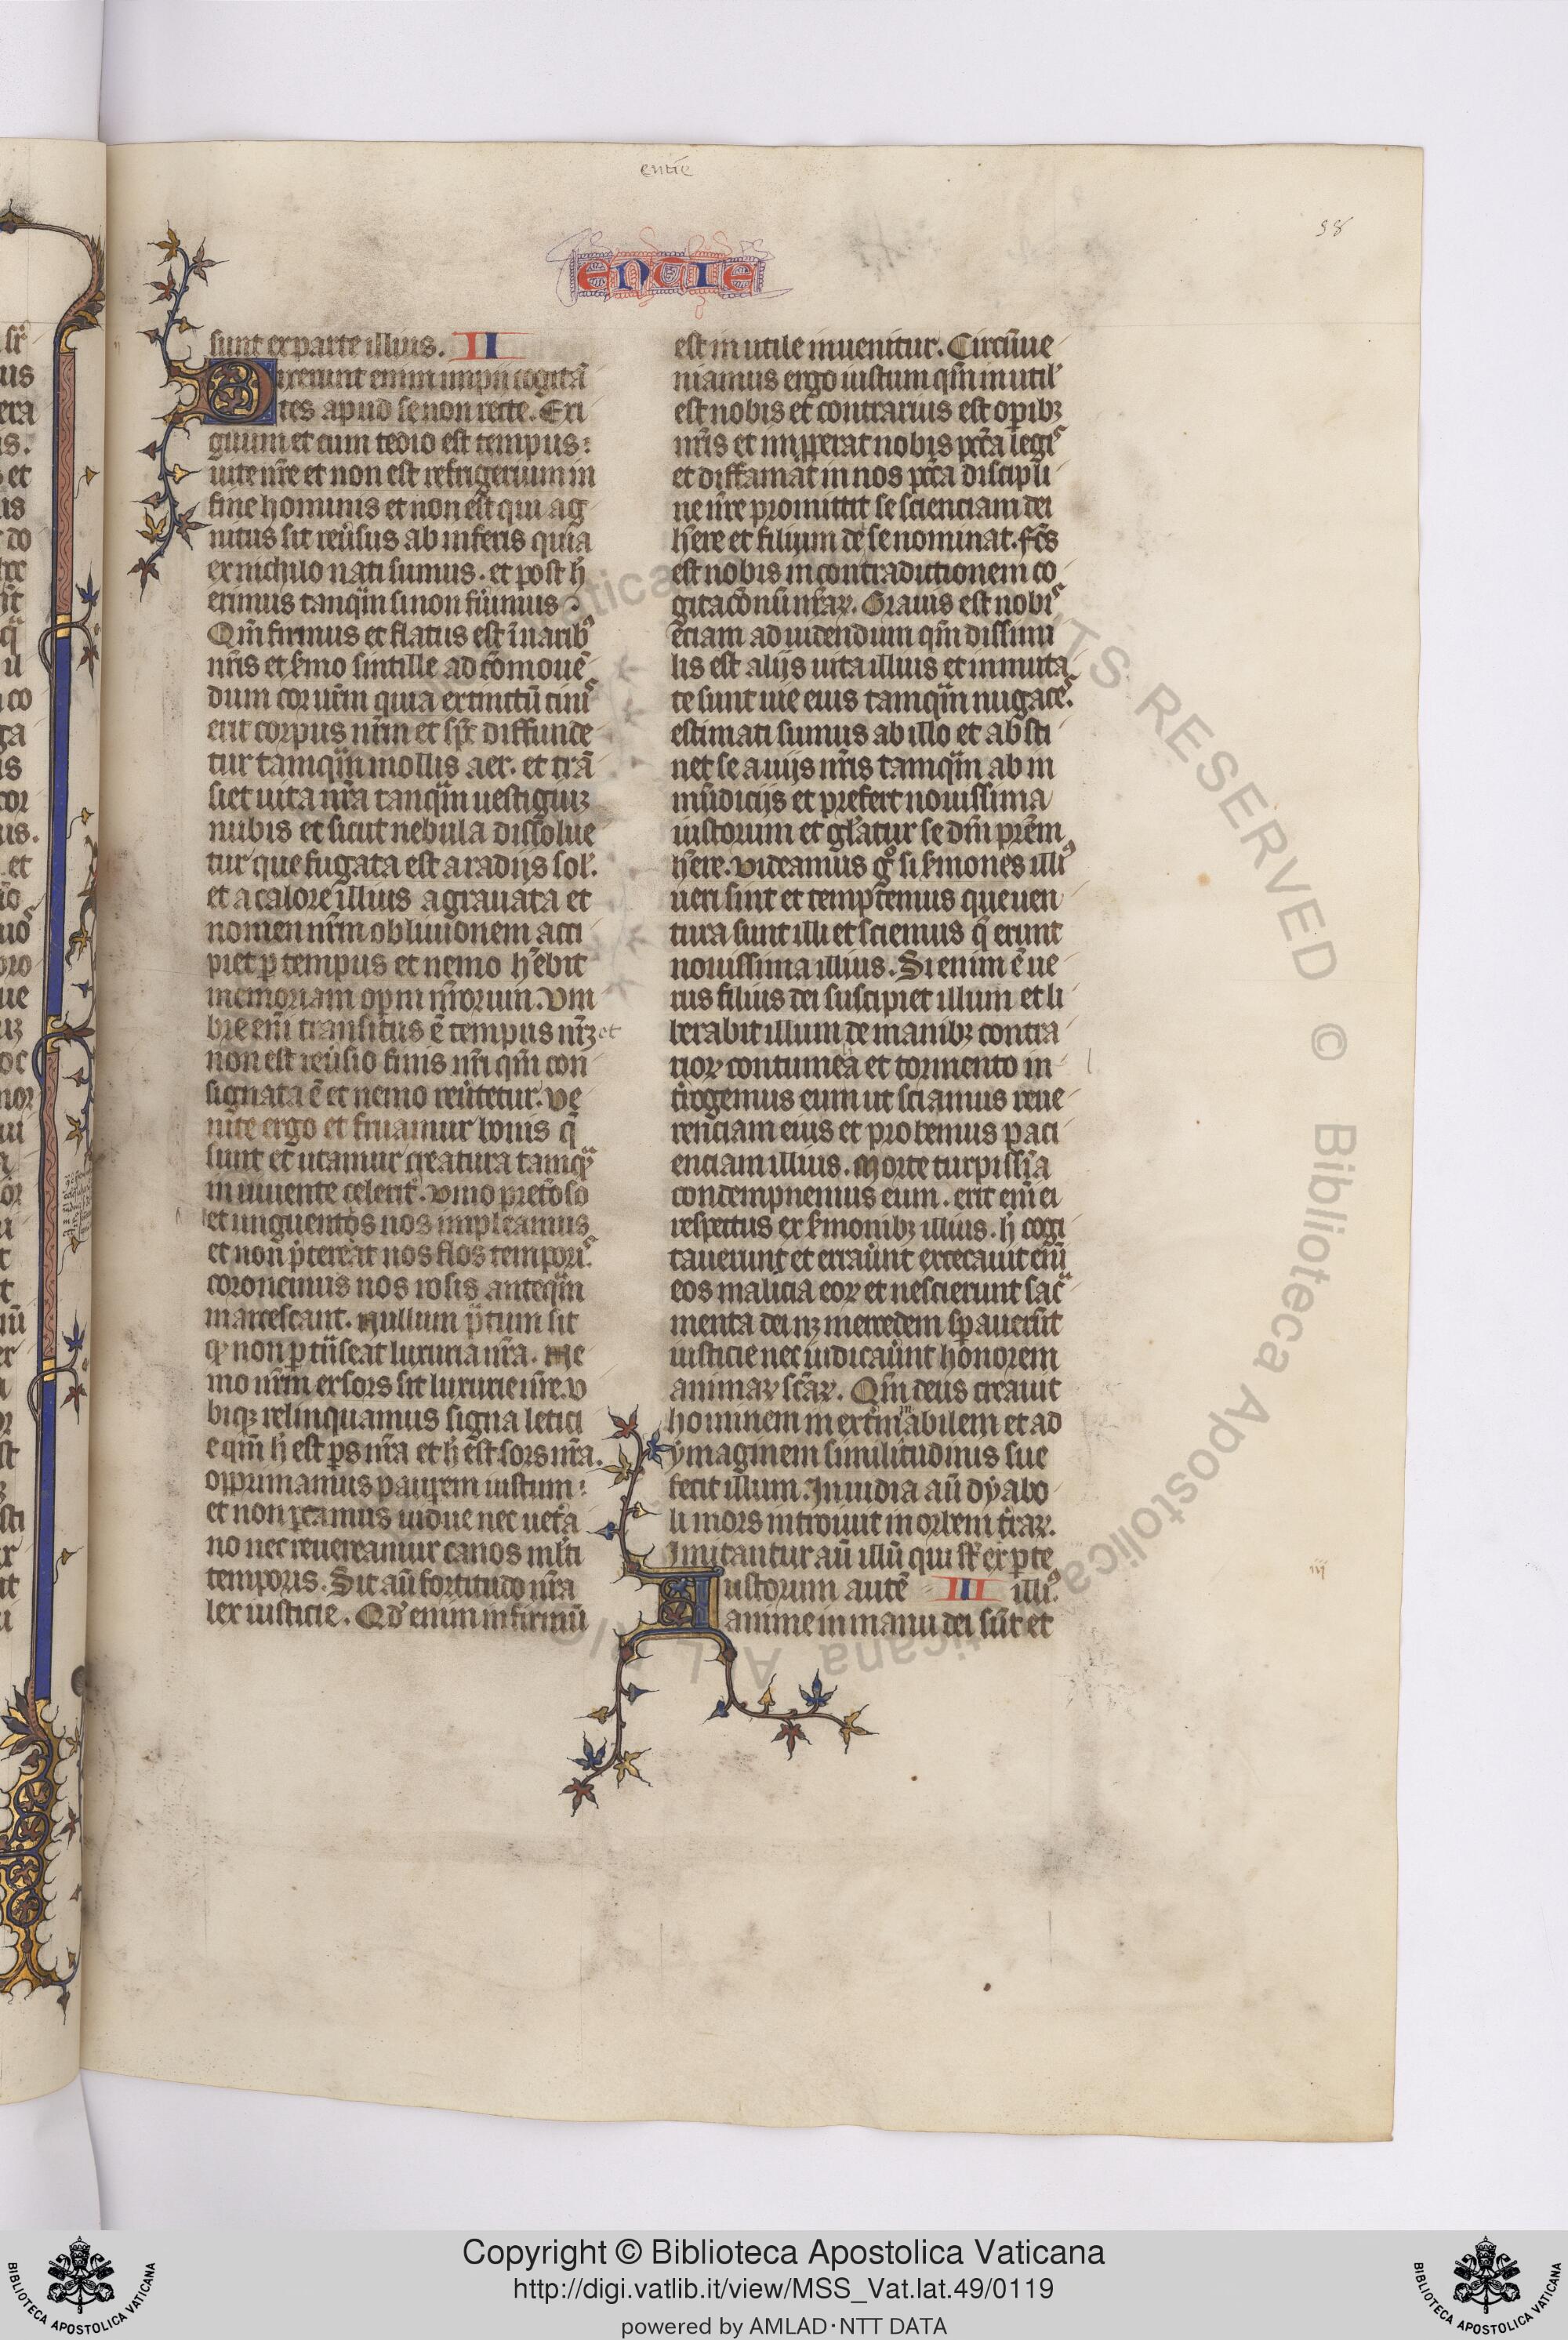 entie
98
ENTIE
sunt ex parte illius. II
Dixerunt enim impij cogitã
tes apud se non recte. Exi
guum et cum tedio est tempus
uite nr̃e et non est refrigerium in
fine hominis et non est qui ag
nitus sit reu̾sus ab inferis quia
ex nichilo nati sumus. et post h̾
erimus tanqͣm si non fuimus
Qm̃ firmus et flatus est ĩ narib᷒
nr̃is et s̾mo sintille ad cõmouẽ
dum cor nr̃m quia extinctũ cinis
erit corpus nr̃m et sp̃c diffunde
tur tamqͣm mollis aer. et trã
siet uita nr̃a tanqͣm uestigiuꝫ
nubis et sicut nebula dissolue
tur que fugata est a radijs sol̾.
et a calore illius agrauata et
nomen nr̃m obliuionem acci
piet ꝑ tempus et nemo hẽbit
memoriam oꝑm nr̃orum. Vm
bre em̃ transitus ẽ tempus nr̃ꝫ et
non est reu̾sio finis nr̃i qm̃ con
signata ẽ et nemo reu̾tetur. Ve
nite ergo et fruamur bonis q̃
sunt et utamur creatura tamqͣ
in iuuente celerit̾. Vino prec̃oso
et unguentos nos impleamus
et non p̾tereat nos flos tempor̾.
coronemus nos rosis anteqͣm
marcescant. Nullum pͣtum sit
qͦ non ꝑtͣnseat luxuria nr̃a. Ne
mo nr̃m exsors sit luxurie nr̃e. V
biqꝫ relinquamus signa letici
e qm̃ h̾ est ꝑs nr̃a et h̾ est sors nr̃a.
opprimamus pauꝑem iustum
et non ꝑcamus uidue nec uet̾a
no nec reuereamur canos ml̾ti
temporis. Sit aũ fortitudo nr̃a
lex iusticie. Qd̾ enim infirmũ
est inutile inuenitur. Circũue
niamus ergo iustum qm̃ inutil̾
est nobis et contrarius est oꝑibꝫ
nr̃is et impꝑerat nobis pc̃ta legis
et diffamat in nos pc̃ta discipli
ne nr̃e promittit se scienciam dei
hẽre et filium dei se nominat. fc̃s
est nobis in contradictionem co
gitacõnũ nr̃aꝝ. Grauis est nobis
eciam ad uidendum qm̃ dissimi
lis est alijs uita illius et inmuta
te sunt uie eius tamqͣm nugaces.
estimati sumus ab illo et absti
net se a uijs nr̃is tamqͣm ab in
mũdicijs et prefert nouissima
iustorum et gl̾atur se dm̃ prẽm
hẽre. Videamus gͦ si s̾mones illi᷒
ueri sint et temptemus que uen
tura sunt illi et sciemus q̃ erunt
nouissima illius. Si enim ẽ ue
rus filius dei suscipiet illum et li
berabit illum de manibꝫ contra
rioꝝ contumea et tormento in
t̾rogemus eum ut sciamus reue
renciam eius et probemus paci
enciam illius. Morte turpissĩa
condempnemus eum. erit em̃ ei
respectus ex s̾monibꝫ illius. h̾ cogi
tauerunt et erraũnt excecauit em̃
eos malicia eoꝝ et nescierunt sacͣ
menta dei nꝫ mercedem sꝑauerũt
iusticie nec iudicaũnt honorem
animaꝝ sc̃aꝝ. Qm̃ deus creauit
hominem inext̾mĩabilem et ad
ymaginem similitudinis sue
fecit illum. Inuidia aũ dyabo
li mors introiuit in orbem t̾raꝝ.
Imitantur aũ illũ qui sũt ex ꝑte
Iustorum autẽ III illi᷒.
anime in manu dei sũt et
Copyright © Biblioteca Apostolica Vaticana
http://digi.vatlib.it/view/MSS_Vat.lat.49/0119
powered by AMLAD·NTT DATA